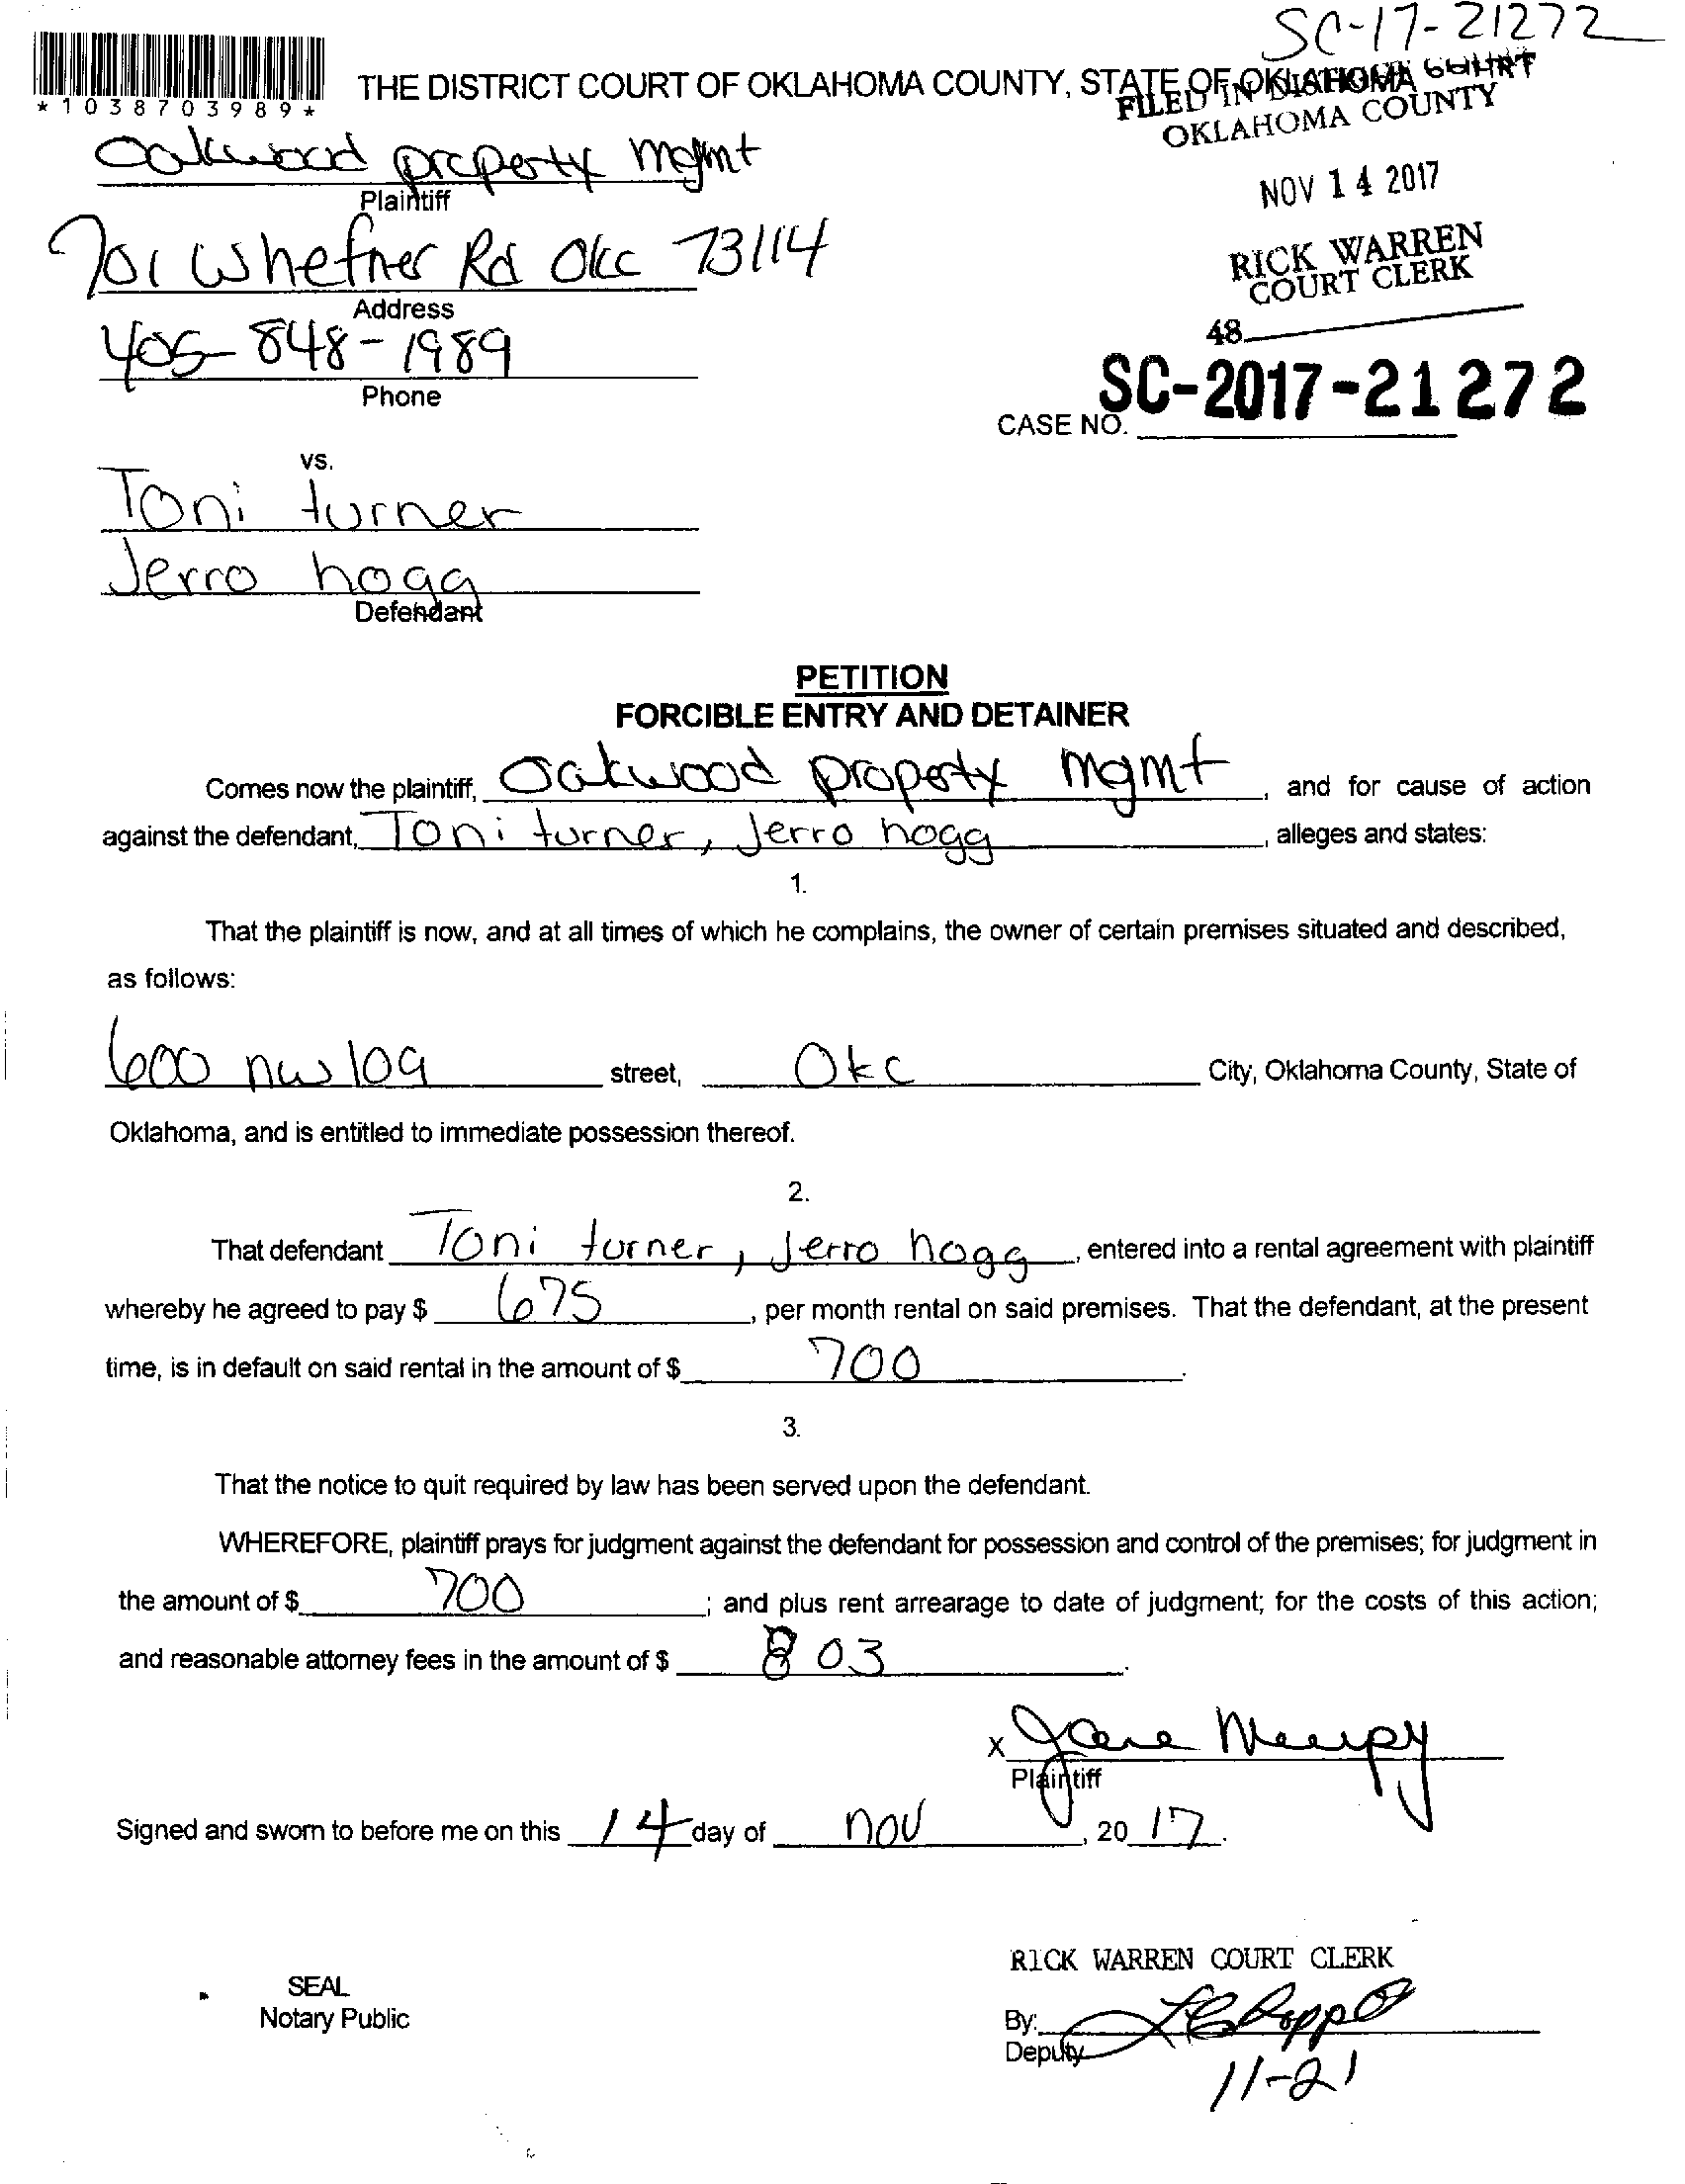 SC-17-21272
*1038703989*
THE DISTRICT COURT OF OKLAHOMA COUNTY, STATE OF OKLAHOMA
FILED IN DISTRICT COURT
OKLAHOMA COUNTY
Oakwood property mgmt
Plaintiff
NOV 14 2017
701 Whefner Rd Okc 73114
Address
RICK WARREN
COURT CLERK
405-848-1989
Phone
48
SC-2017-21272
CASE NO.
vs.
Toni turner
Jerro hogg
Defendant
PETITION
FORCIBLE ENTRY AND DETAINER
Comes now the plaintiff, Oakwood property mgmt, and for cause of action
against the defendant, Toni turner, Jerro hogg, alleges and states:
1.
That the plaintiff is now, and at all times of which he complains, the owner of certain premises situated and described,
as follows:
600 nw 109 street, Okc City, Oklahoma County, State of
Oklahoma, and is entitled to immediate possession thereof.
2.
That defendant Toni turner, Jerro hogg, entered into a rental agreement with plaintiff
whereby he agreed to pay $ 675, per month rental on said premises. That the defendant, at the present
time, is in default on said rental in the amount of $ 700.
3.
That the notice to quit required by law has been served upon the defendant.
WHEREFORE, plaintiff prays for judgment against the defendant for possession and control of the premises; for judgment in
the amount of $ 700; and plus rent arrearage to date of judgment; for the costs of this action;
and reasonable attorney fees in the amount of $ 803.
x Jane
Plaintiff
Signed and sworn to before me on this 14 day of nov, 20 17.
RICK WARREN COURT CLERK
SEAL
Notary Public
By:
Deputy
11-21